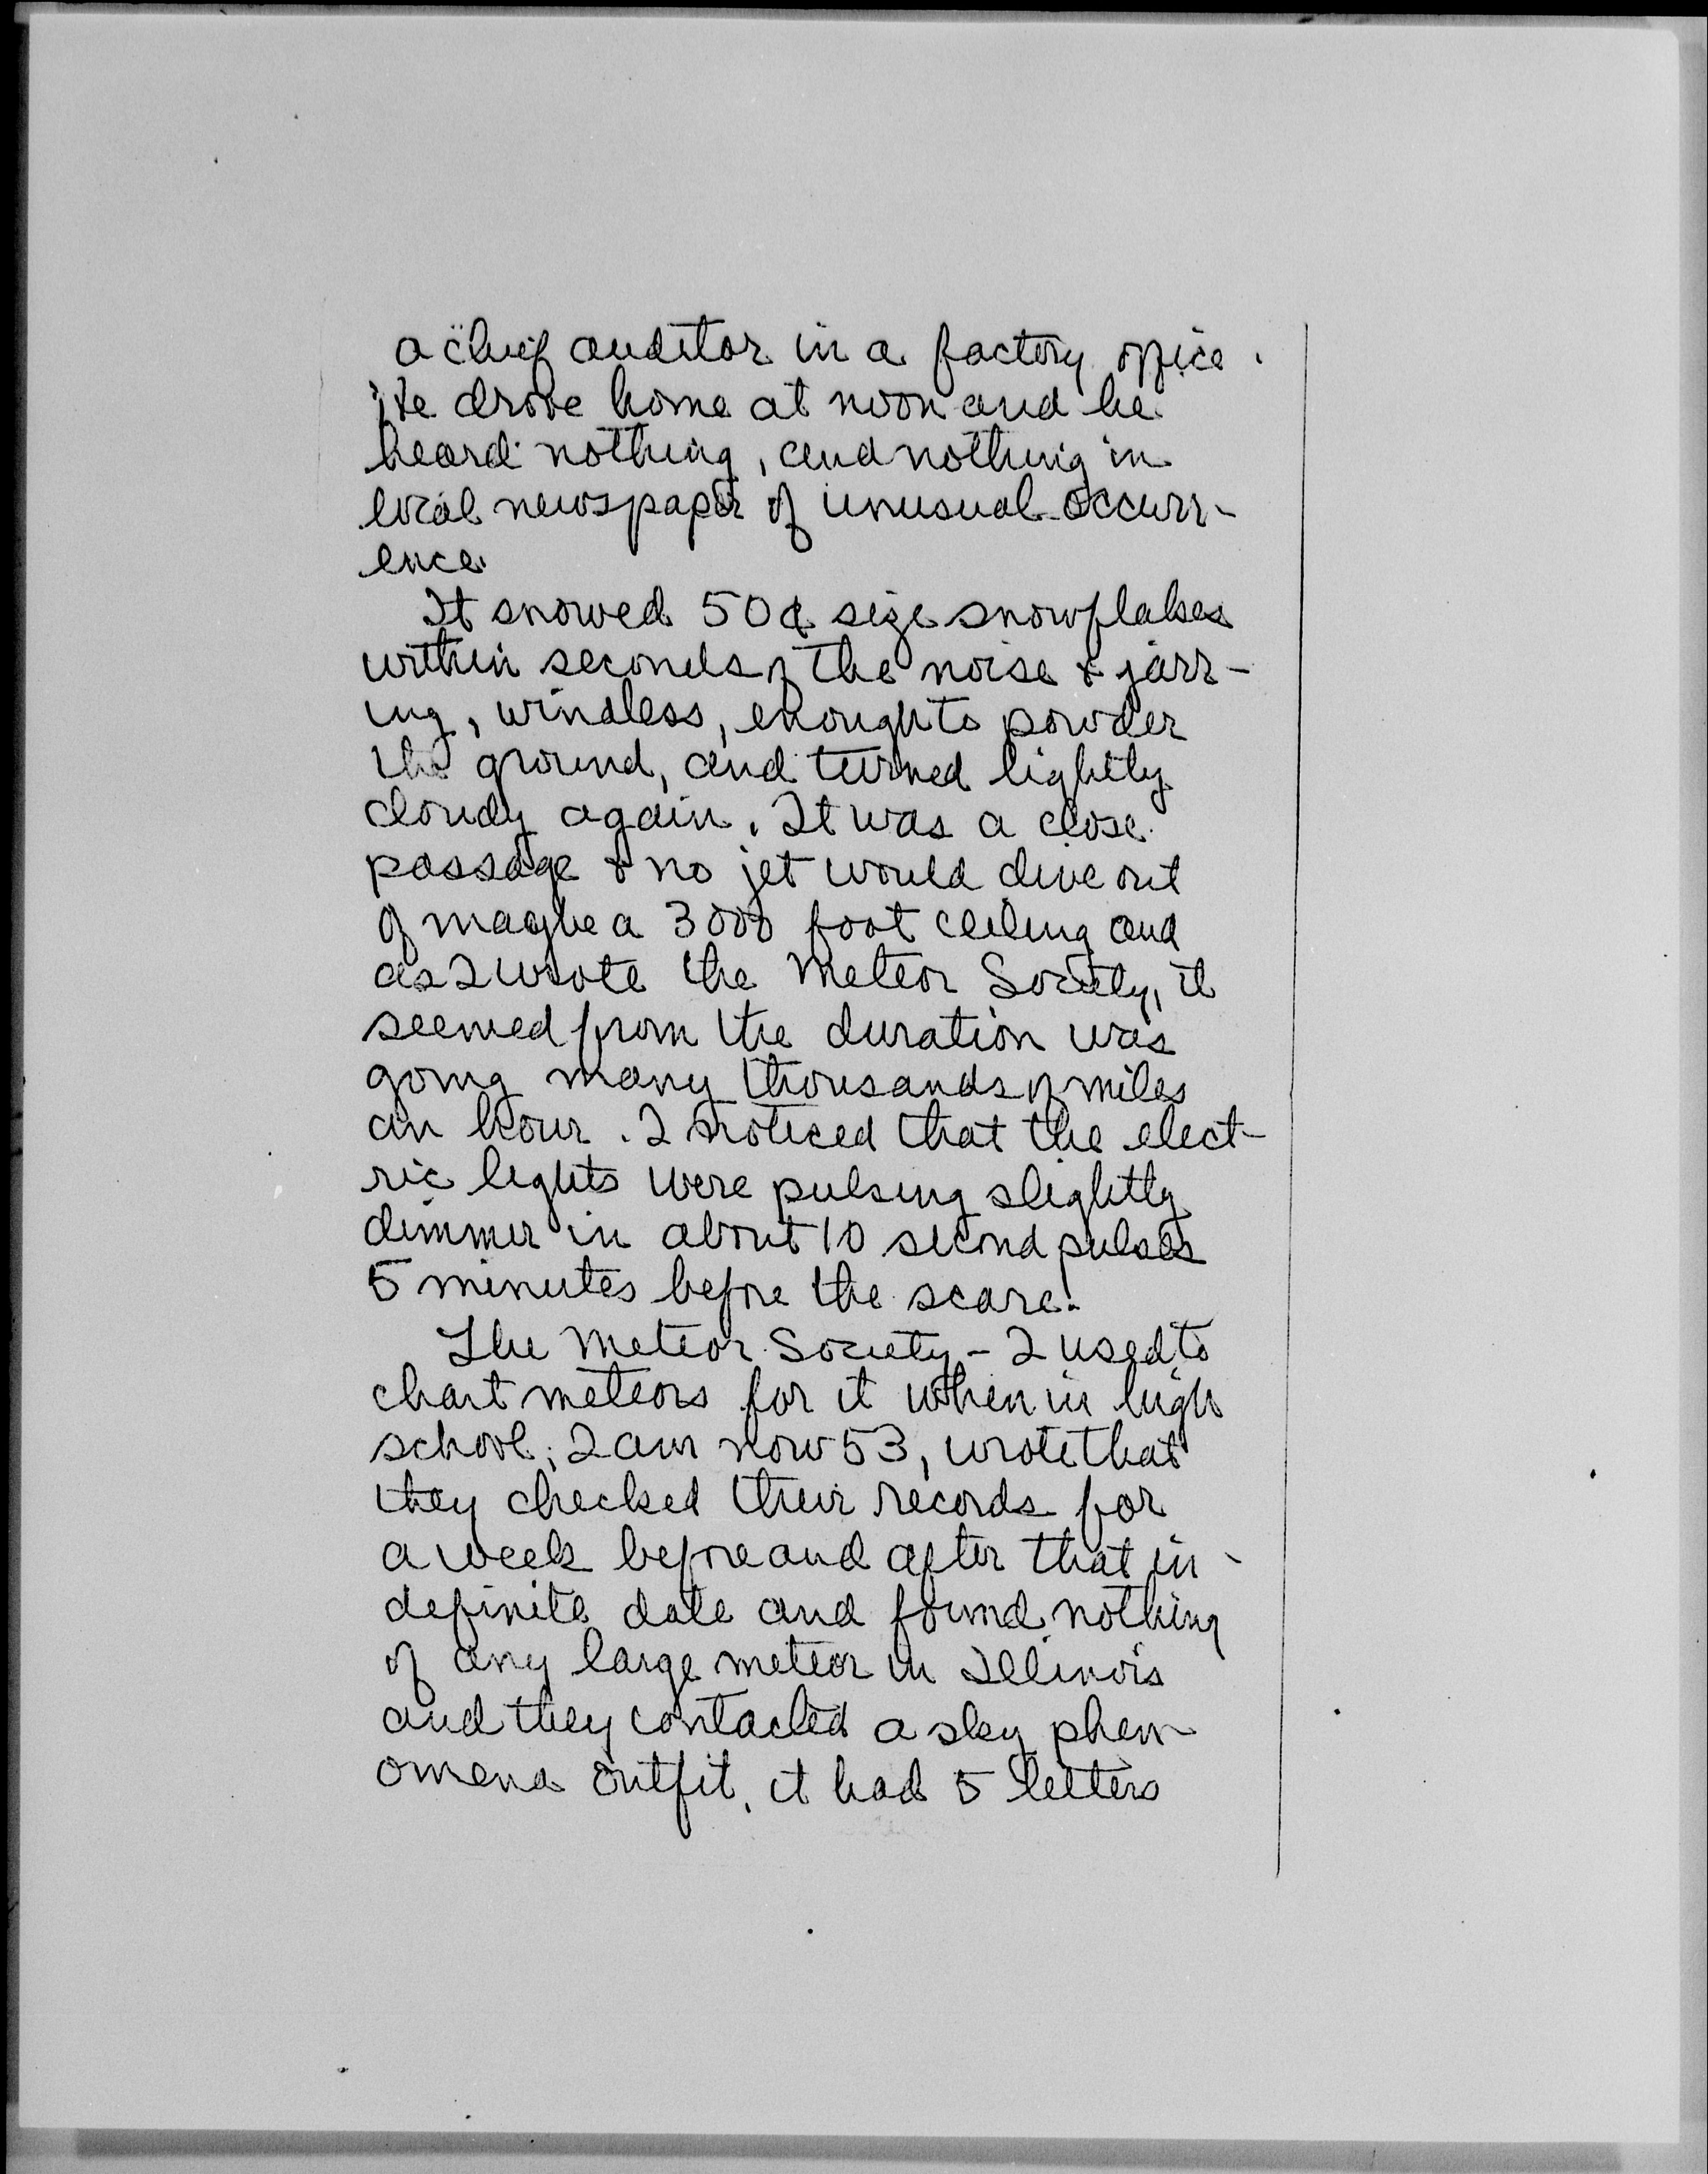 a chief auditor in a factory office.
He drove home at noon and he
heard nothing, and nothing in
local newspaper of unusual occurr-
ence.
It snowed 50¢ size snowflakes
within seconds of the noise & jarr-
ing, windless, enough to powder
the ground, and turned lightly
cloudy again. It was a close
passage & no jet would dive out
of maybe a 3000 foot ceiling and
as I wrote the Meteor Society, it
seemed from the duration was
going many thousands of miles
an hour. I noticed that the elect-
ric lights were pulsing slightly
dimmer in about 10 second pulses
5 minutes before the scare.
The Meteor Society - I used to
chart meteors for it when in high
school; I am now 53, wrote that
they checked their records for
a week before and after that in-
definite date and found nothing
of any large meteor in Illinois
and they contacted a sky phen-
omena outfit, it had 5 letters